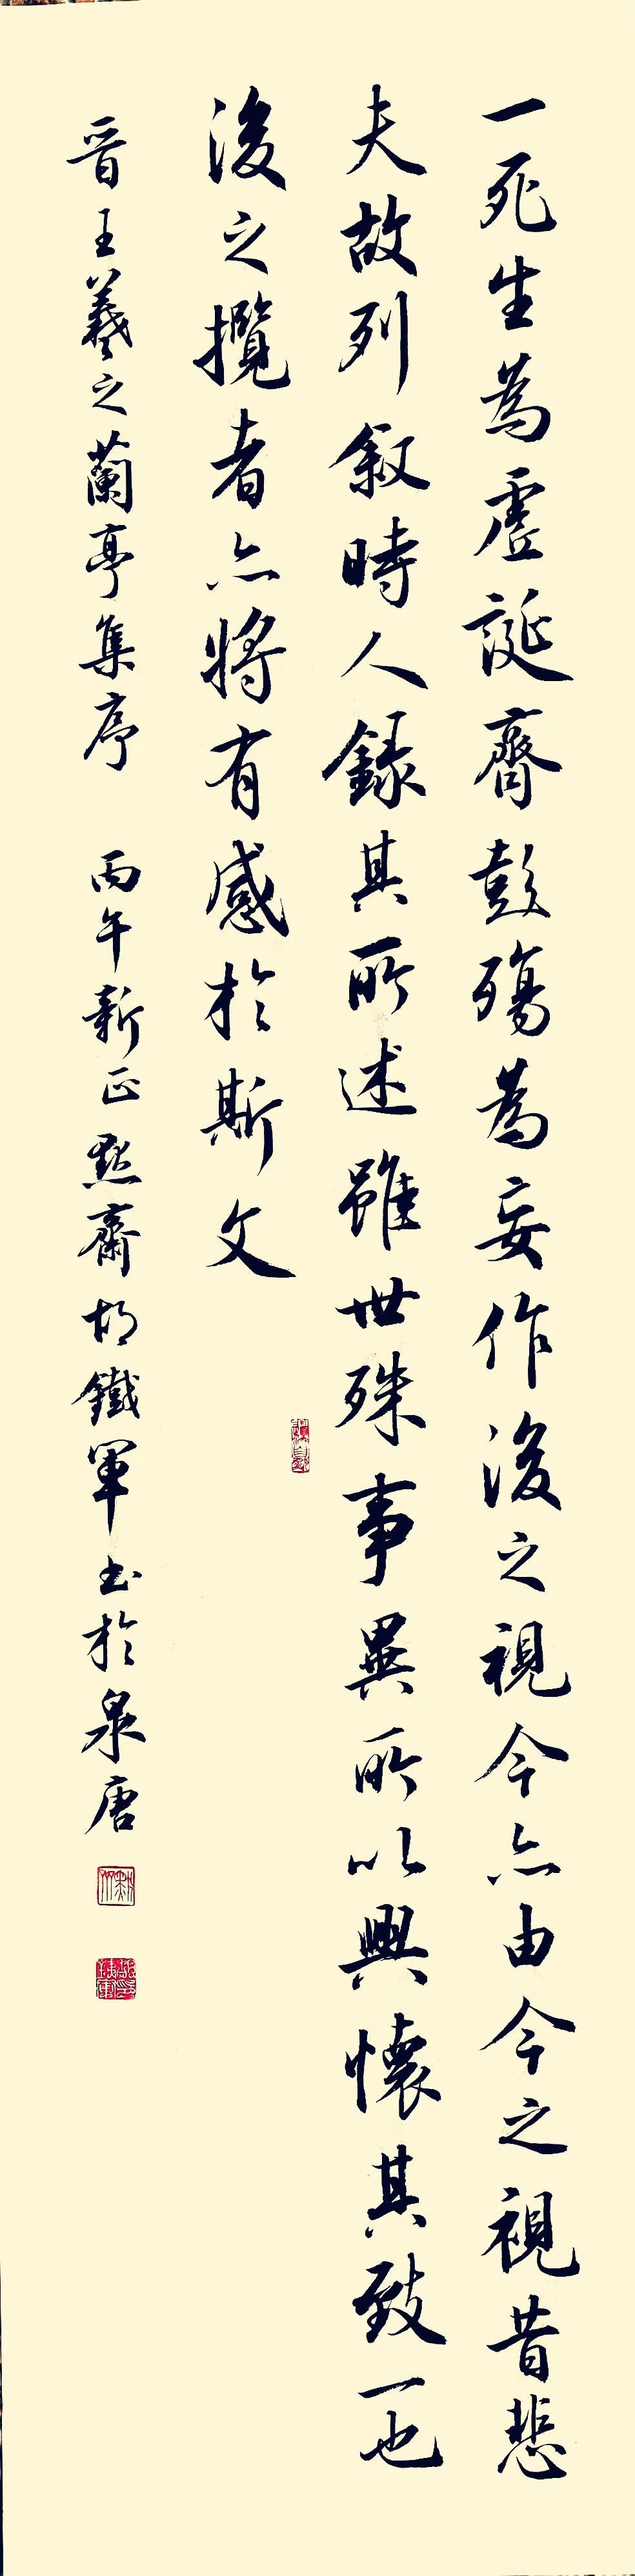 一死生為虛誕齊彭殤為妄作後之視今亦由今之視昔悲
夫故列敘時人錄其所述雖世殊事異所以興懷其致一也
後之攬者亦將有感於斯文
晉王羲之蘭亭集序 丙午新正 默齋胡鐵軍書於泉唐